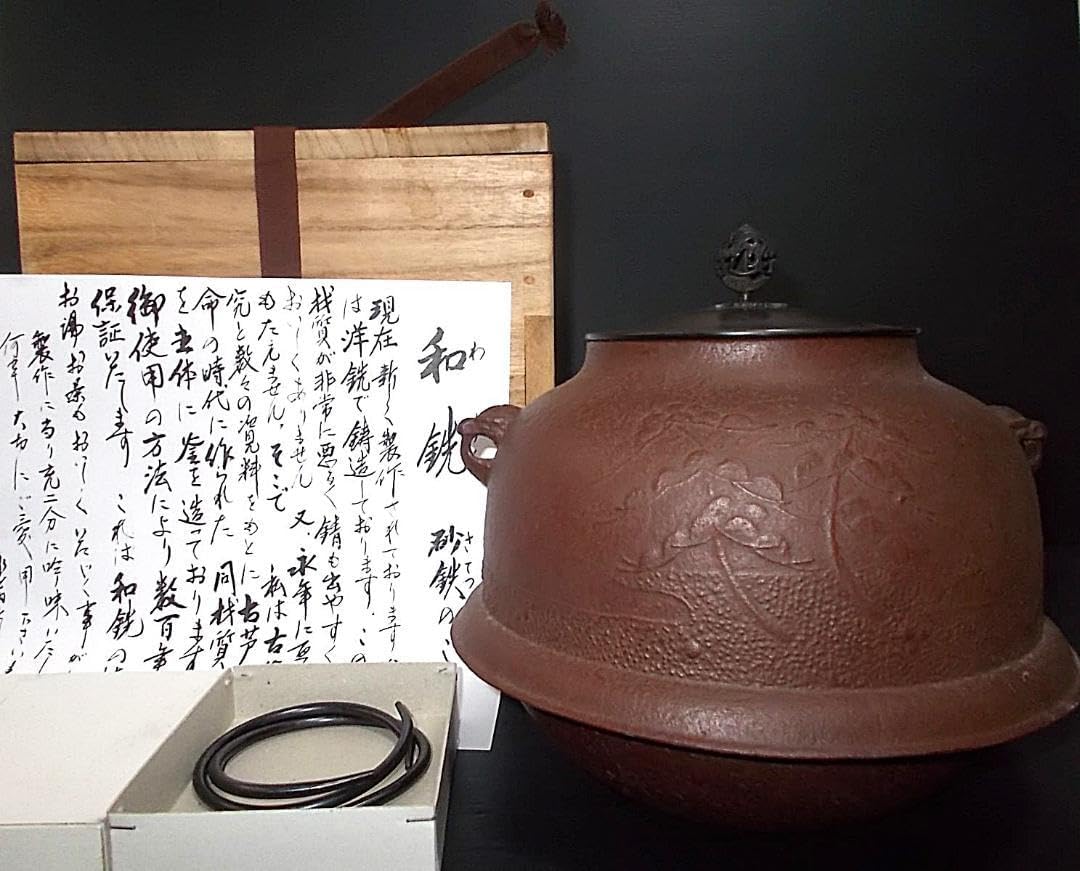 和銑 砂鉄のこ
わ さてつ
現在新しく製作されております
は洋銑で鋳造しております。この
材質が非常に悪るく錆も出やすく
おいしくありません 又、永年に
もたえません。そこで 私は古
究と数々の資料をもとに古芦
命の時代に作られた 同材質
を主体に釜を造っております
御使用の方法により数百年
保証いたします これは和銑の
お湯お茶もおいしくいただく事が
製作に当り充二分に吟味いた
何卒大切にご愛用下さいま